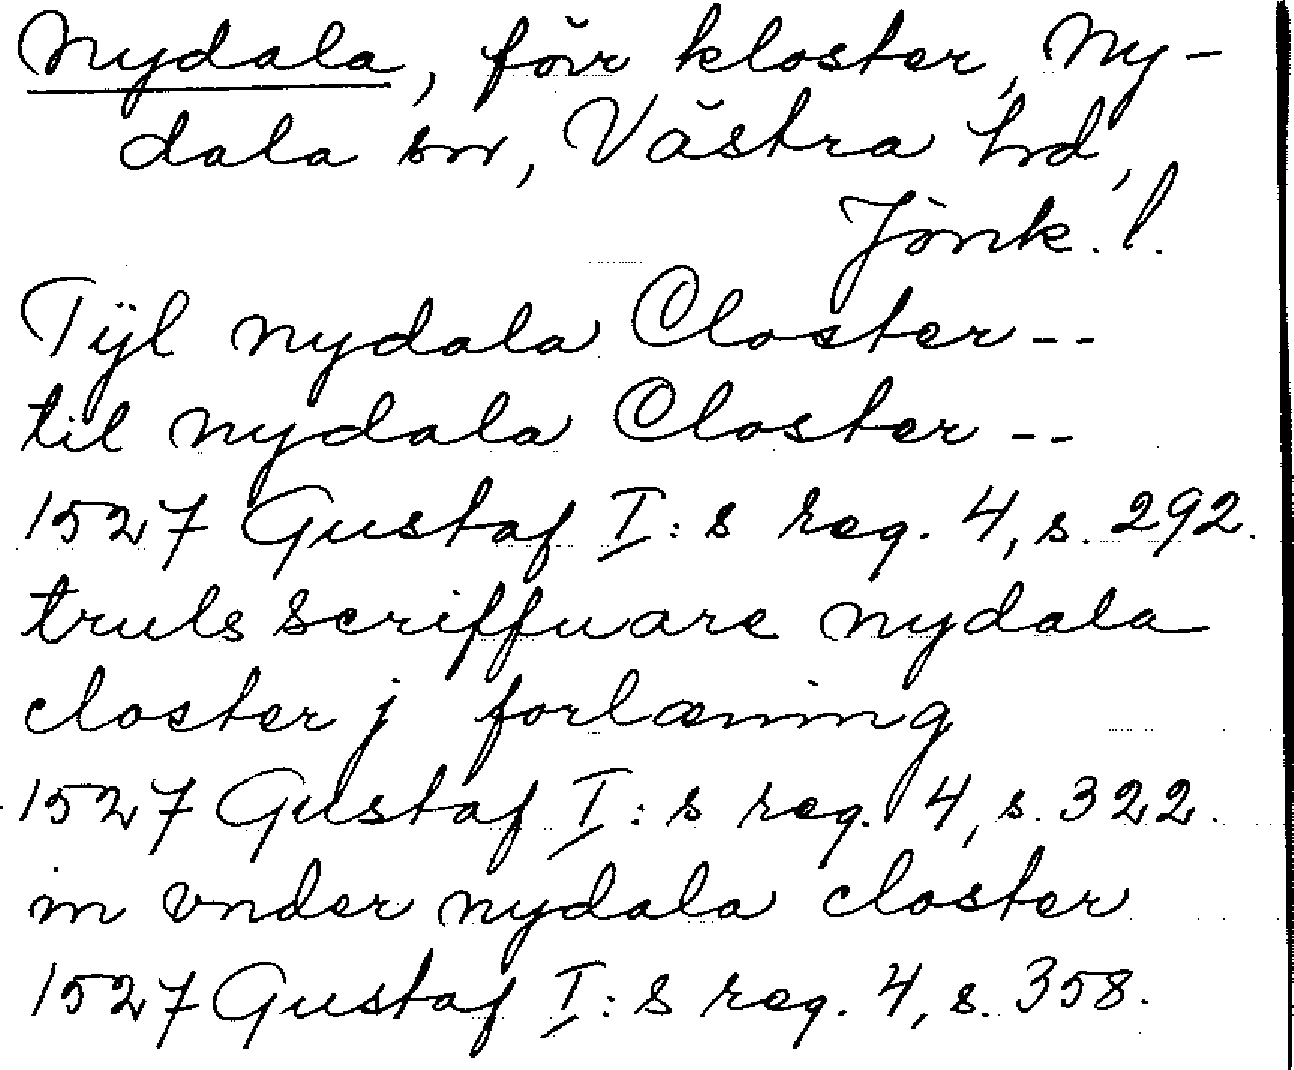 Nydala, förr kloster, Ny-
dala sn, Västra hd,
Jönk. l.
Tÿl nydala Closter --
til nydala Closter --
1527 Gustaf I:s reg. 4, s. 292.
truls scriffuare nydala
closter j forlæning
1527 Gustaf I:s reg. 4, s. 322.
in vnder nydala closter
1527 Gustaf I:s reg. 4, s. 358.